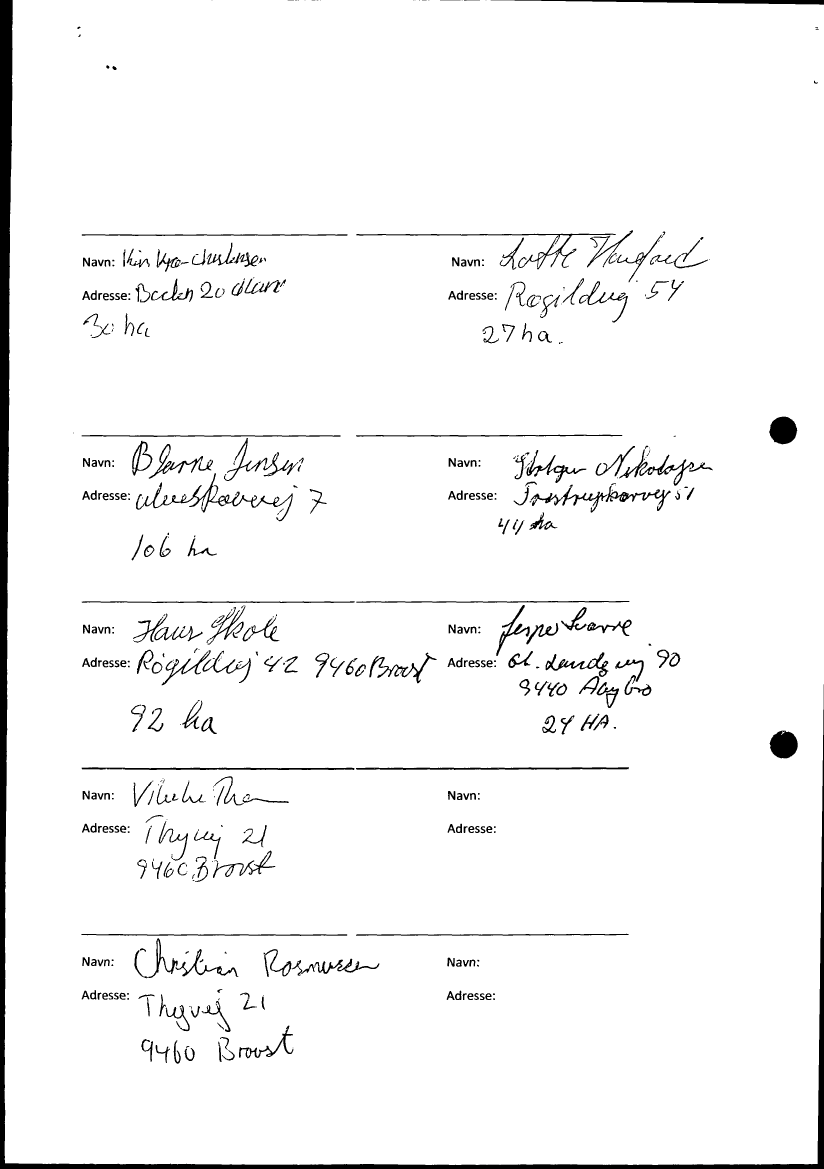 Navn:
Adresse: 20
30 ha
Navn: Lotte
Adresse: Røgildvej 54
27 ha.
Navn: Bjarne Jensen
Adresse: Ulveskovvej 7
106 ha
Navn: Holger Nikolajsen
Adresse: 51
44 ha
Navn: Hans Skole
Adresse: Røgildvej 42 9460 Brovst
92 ha
Navn: Jesper Svarre
Adresse: Gl. Landevej 90
9440 Aabybro
24 HA.
Navn: Vibeke
Adresse: Thyvej 21
9460 Brovst
Navn:
Adresse:
Navn: Christian Rasmussen
Adresse: Thyvej 21
9460 Brovst
Navn:
Adresse: